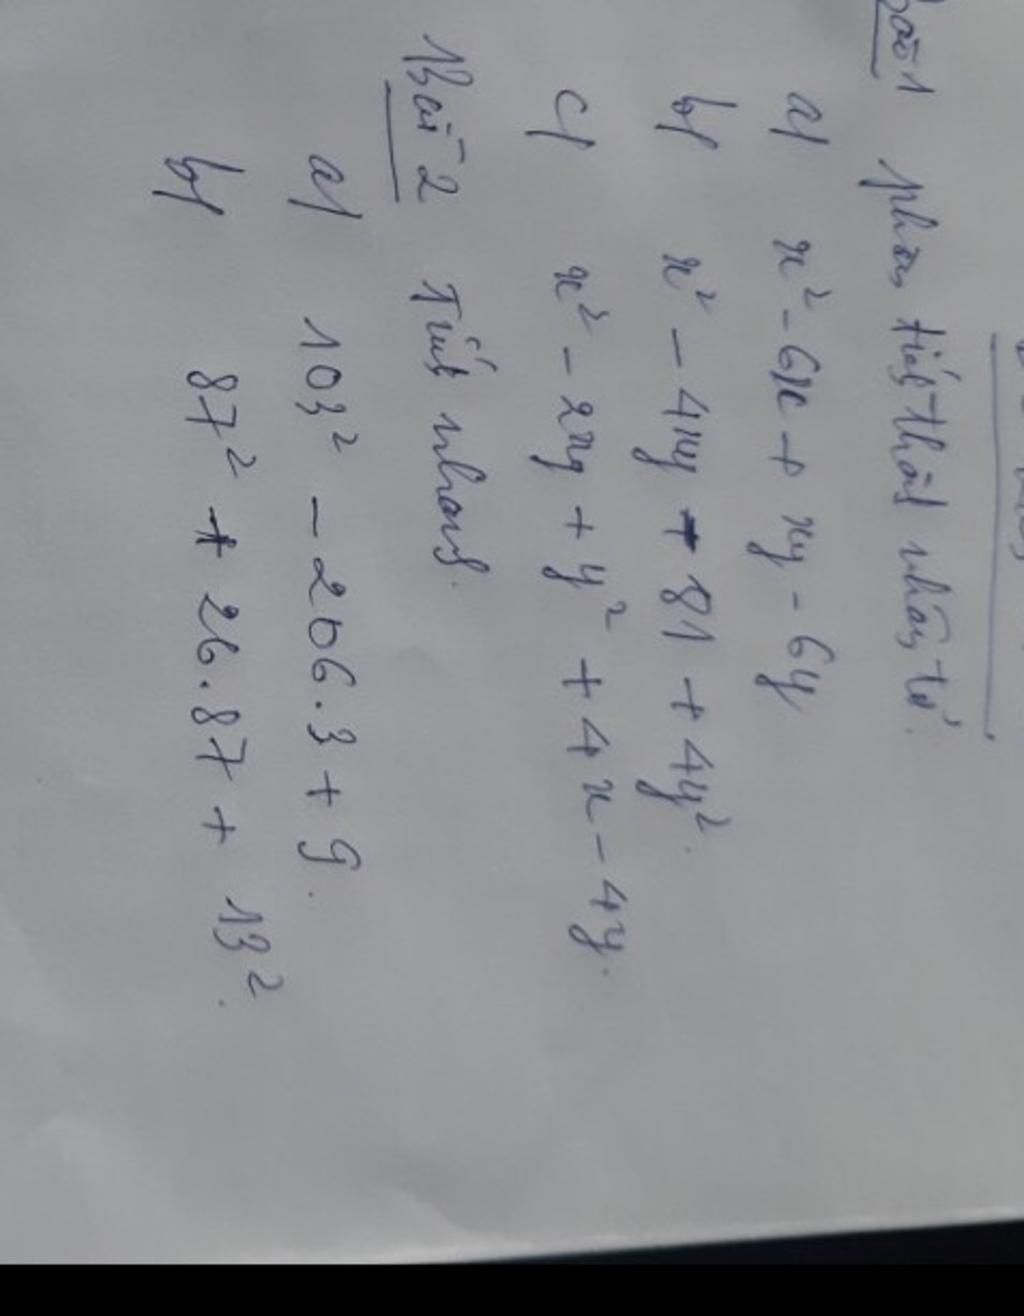 Bài 1 phân tích thành nhân tử.
a/ x² - 6x + xy - 6y
b/ x² - 4xy + 81 + 4y².
c/ x² - 2xy + y² + 4x - 4y.
Bài 2 Tính nhanh.
a/ 103² - 206.3 + 9.
b/ 87² + 26.87 + 13².